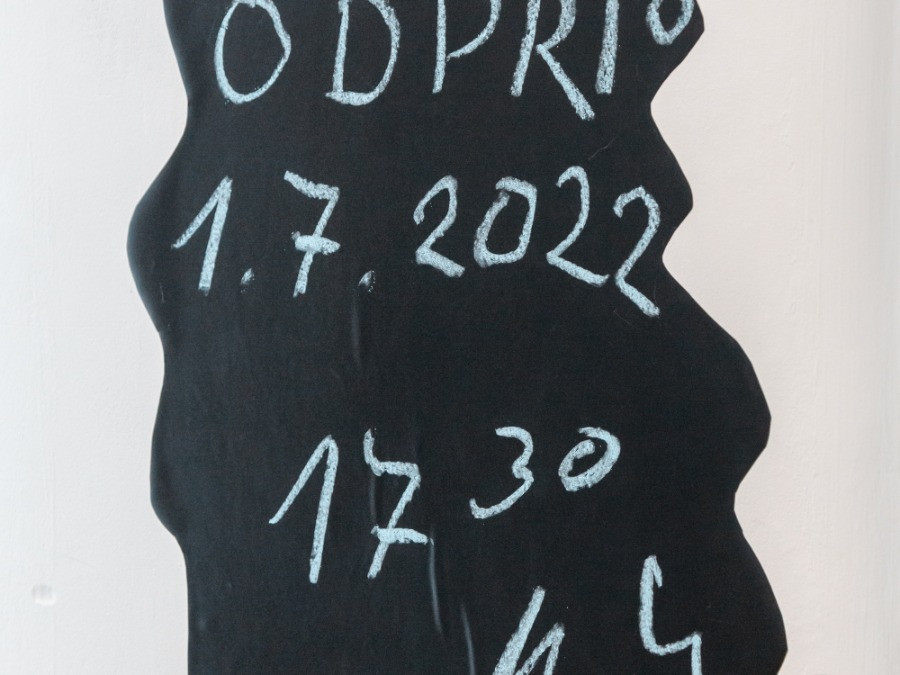 ODPRTO
1.7.2022
17 30